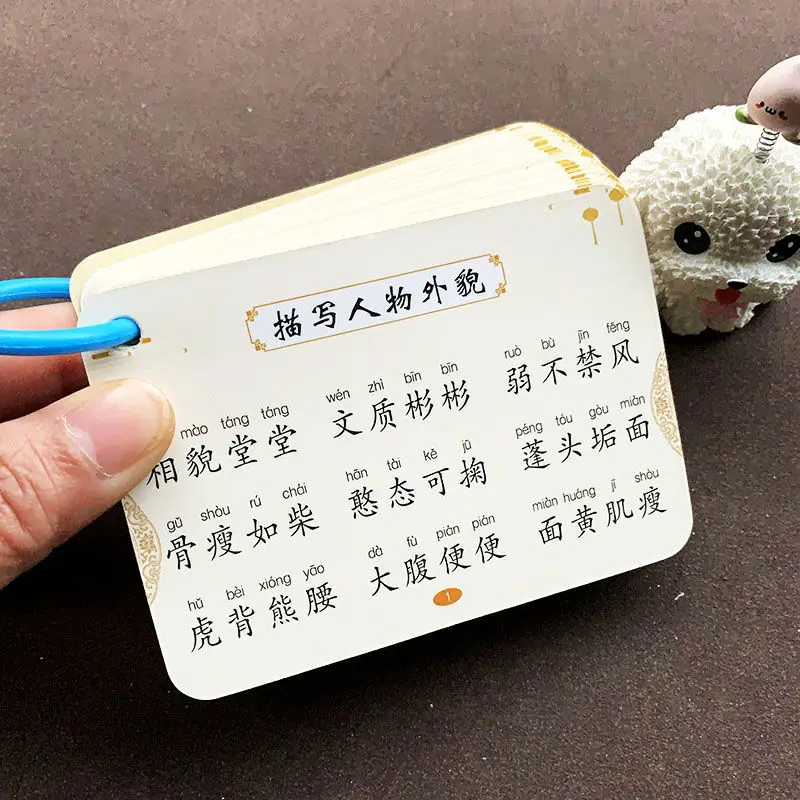 描写人物外貌
mào táng táng wén zhì bīn bīn ruò bù jīn fēng
相貌堂堂 文质彬彬 弱不禁风
gǔ shòu rú chái hān tài kě jū péng tóu gòu miàn
骨瘦如柴 憨态可掬 蓬头垢面
hǔ bèi xióng yāo dà fù pián pián miàn huáng jī shòu
虎背熊腰 大腹便便 面黄肌瘦
1